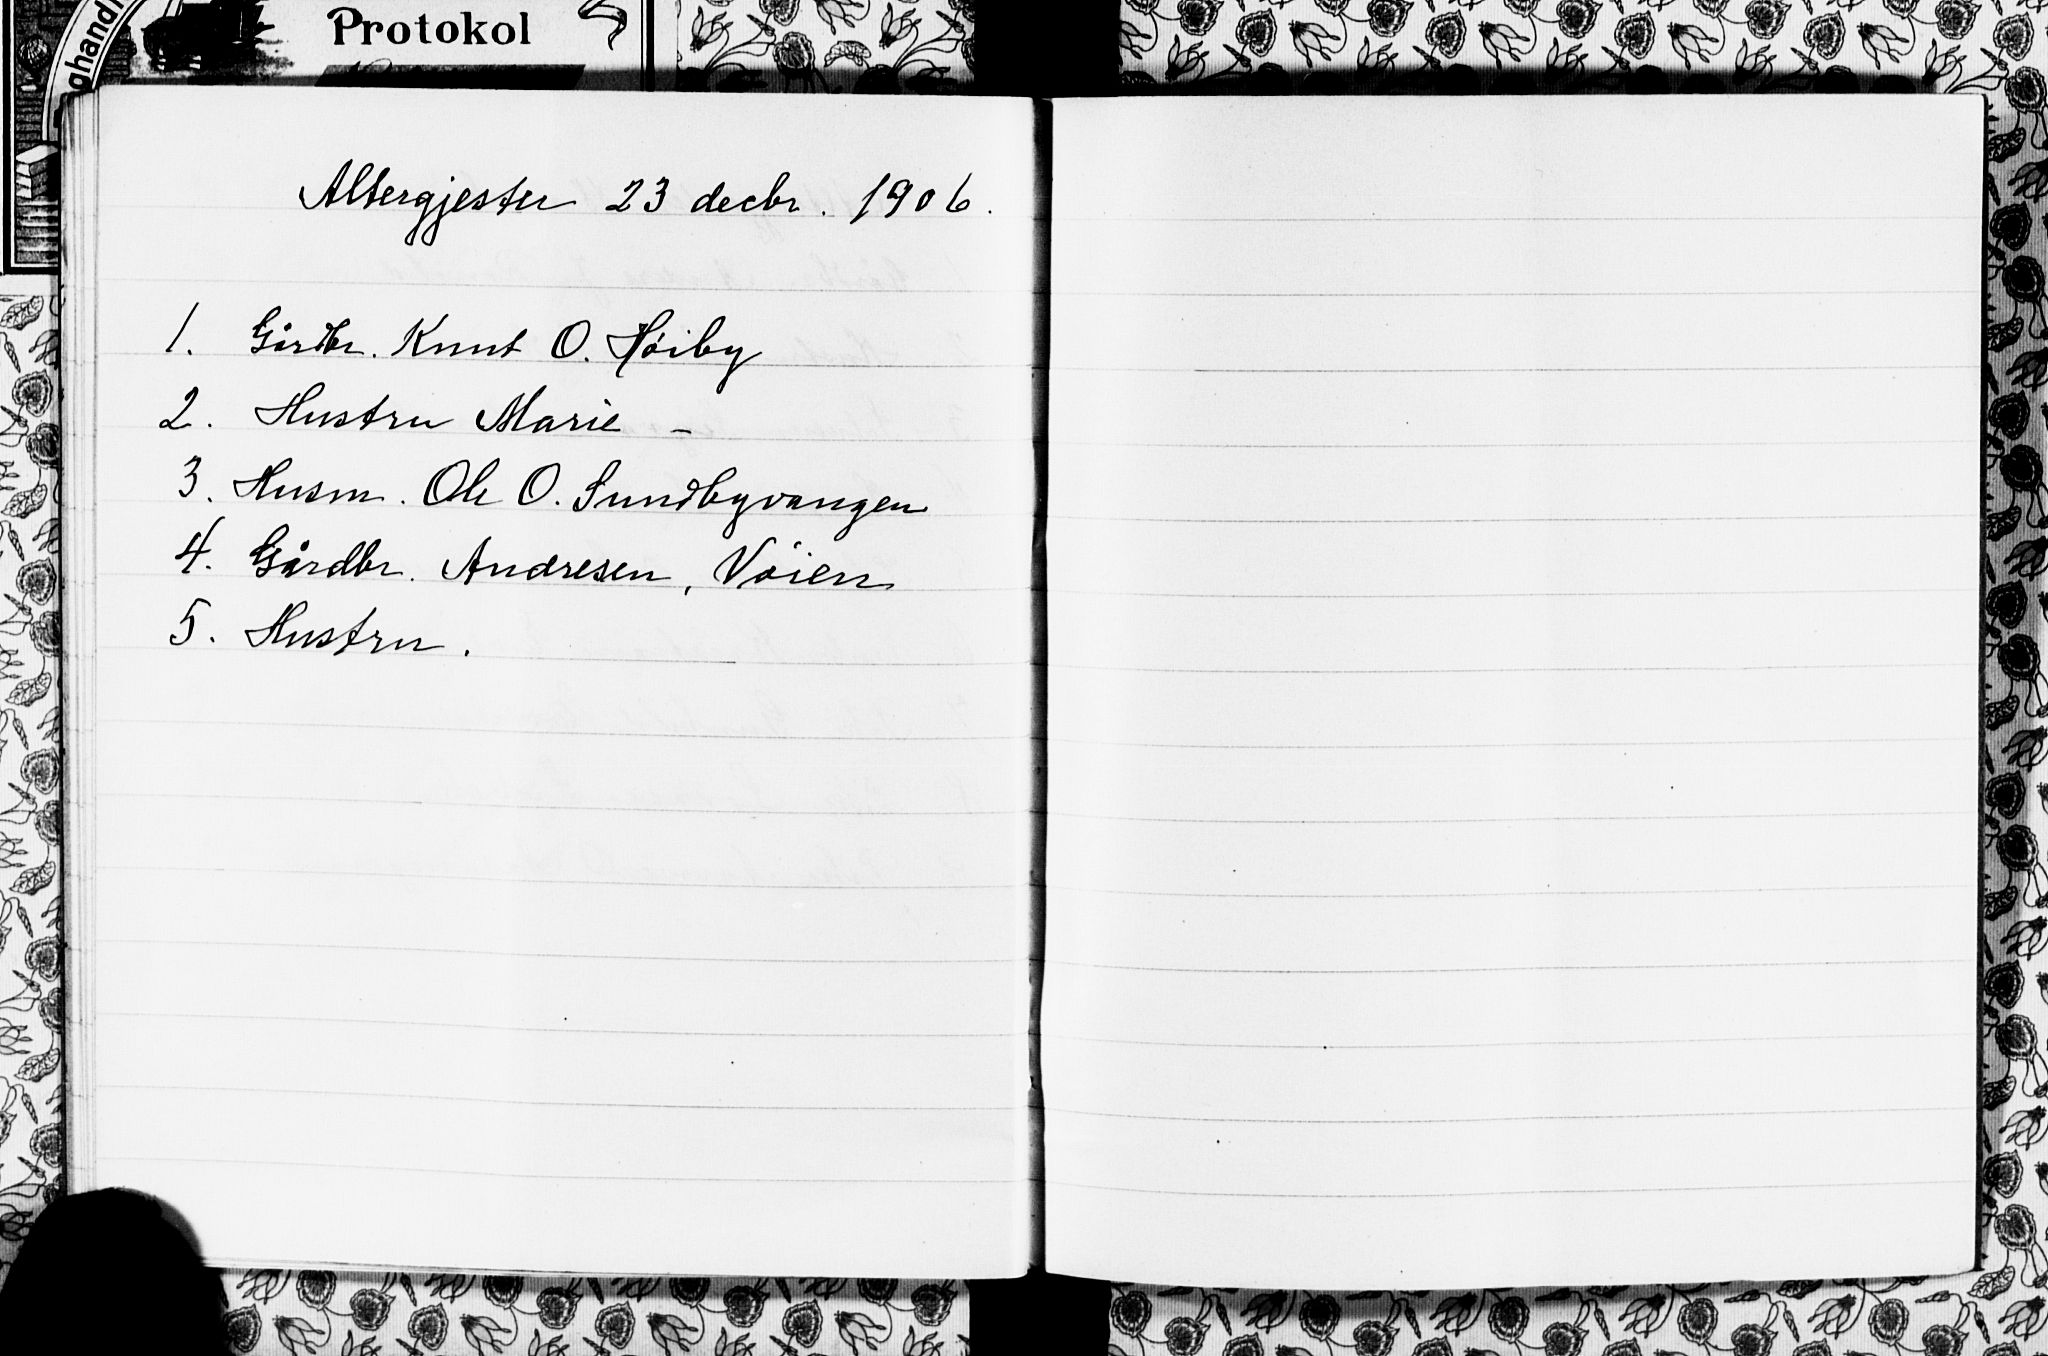 ghandl
Protokol
Altergjester 23 decbr. 1906.
1. Gårdbr. Knut O. Høiby
2. Hustru Marie –
3. Husm. Ole O. Sundbyvangen
4. Gårdbr. Andresen, Vøien
5. Hustru.